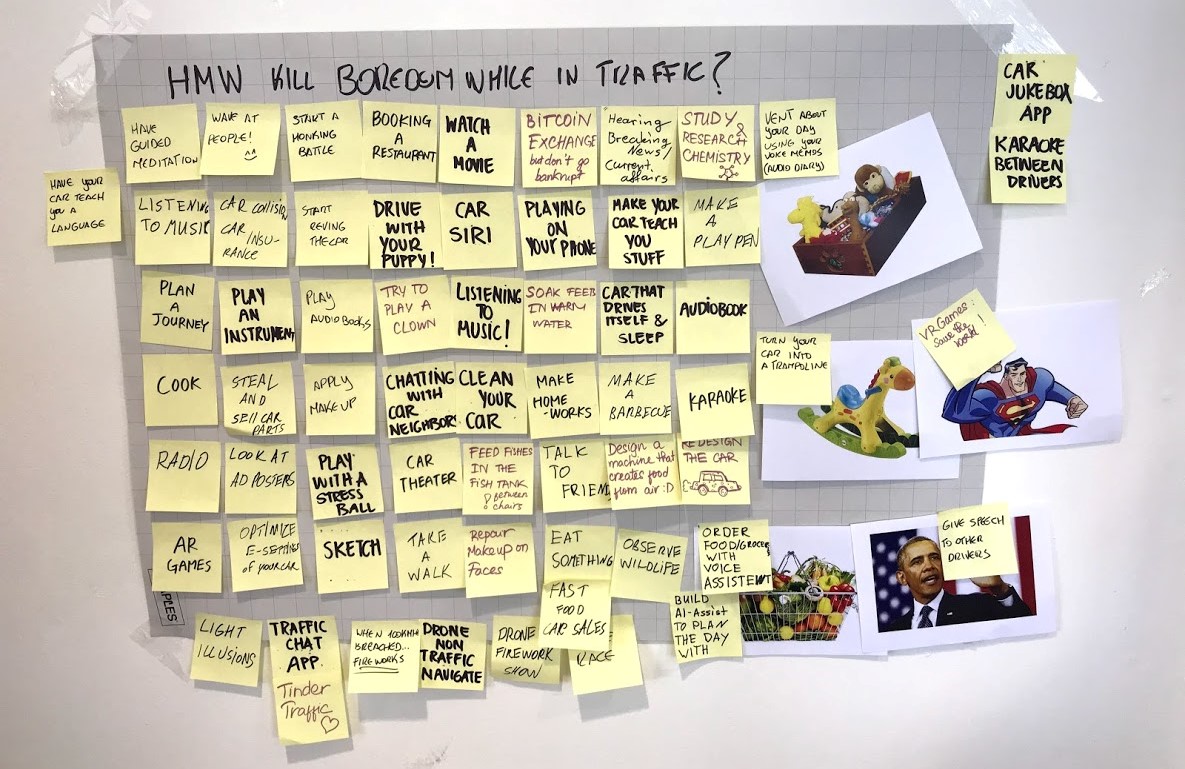 HMW KILL BOREDOM WHILE IN TRAFFIC?
CAR
JUKEBOX
APP
KARAOKE
BETWEEN
DRIVERS
HAVE
GUIDED
MEDITATION
WAVE AT
PEOPLE!
START A
HONKING
BATTLE
BOOKING
A
RESTAURANT
WATCH
A
MOVIE
BITCOIN
EXCHANGE
but don't go
bankrupt
Hearing
Breaking
News/
Current
affairs
STUDY &
RESEARCH
CHEMISTRY
VENT ABOUT
YOUR DAY
USING YOUR
VOICE MEMOS
(AUDIO DIARY)
HAVE YOUR
CAR TEACH
YOU A
LANGUAGE
LISTENING
TO MUSIC
CAR COLLISION
CAR INSU-
RANCE
START
REVING
THE CAR
DRIVE
WITH
YOUR
PUPPY!
CAR
SIRI
PLAYING
ON
YOUR PHONE
MAKE YOUR
CAR TEACH
YOU
STUFF
MAKE
A
PLAY PEN
PLAN
A
JOURNEY
PLAY
AN
INSTRUMENT
PLAY
AUDIOBOOKS
TRY TO
PLAY A
CLOWN
LISTENING
TO
MUSIC!
SOAK FEET
IN WARM
WATER
CAR THAT
DRIVES
ITSELF &
SLEEP
AUDIOBOOK
TURN YOUR
CAR INTO
A TRAMPOLINE
VR Games:
Save the
World!
COOK
STEAL
AND
SELL CAR
PARTS
APPLY
MAKE UP
CHATTING
WITH
CAR
NEIGHBOR
CLEAN
YOUR
CAR
MAKE
HOME
-WORKS
MAKE
A
BARBECUE
KARAOKE
RADIO
LOOK AT
AD POSTERS
PLAY
WITH A
STRESS
BALL
CAR
THEATER
FEED FISHES
IN THE
FISH TANK
between
chairs
TALK
TO
FRIEND
Design a
machine that
creates food
from air :D
RE DESIGN
THE CAR
AR
GAMES
OPTIMIZE
of your car
SKETCH
TAKE
A
WALK
Repair
Makeup on
Faces
EAT
SOMETHING
OBSERVE
WILDLIFE
ORDER
FOOD/GROCER
WITH
VOICE
ASSISTENT
GIVE SPEECH
TO OTHER
DRIVERS
FAST
FOOD
CAR SALES
BUILD
AI-Assist
TO PLAN
THE DAY
WITH
LIGHT
ILLUSIONS
TRAFFIC
CHAT
APP
WHEN 100KMH
BREACHED...
FIREWORKS
DRONE
NON
TRAFFIC
NAVIGATE
DRONE
FIREWORK
SHOW
RACE
Tinder
Traffic